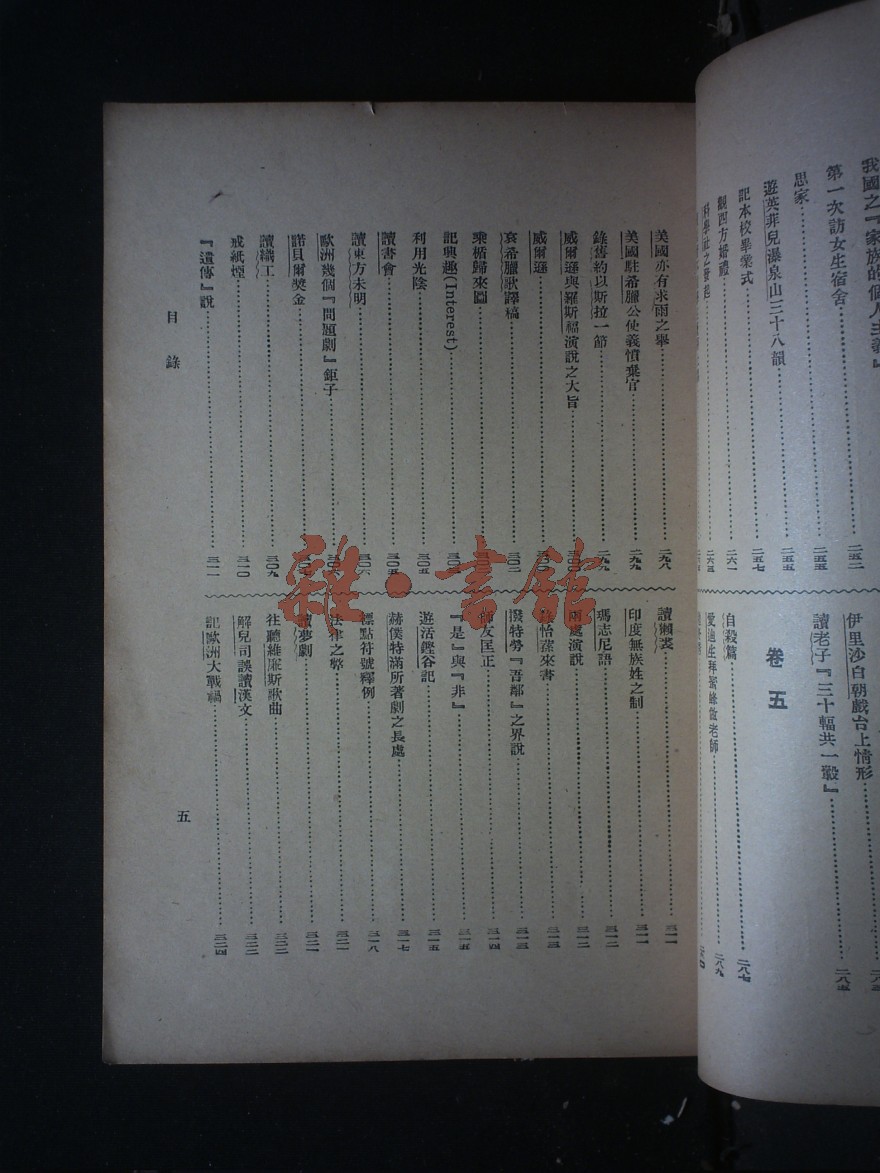 我國之『家族的個人主義』
第一次訪女生宿舍……二五二
思家……二五五
遊英菲兒瀑泉山三十八韻……二五五
記本校畢業式……二五七
觀西方婚禮……二六一
科學社之發起……二六五
伊里沙白朝戲台上情形
讀老子『三十輻共一轂』……二八五
卷五
自殺篇……二八七
愛迪生拜蜜蜂做老師……二八九
美國亦有求雨之舉……二九八
美國駐希臘公使義憤棄官……二九九
錄舊約以斯拉一節……二九九
威爾遜與羅斯福演說之大旨……三〇〇
威爾遜
哀希臘歌譯稿……三〇二
乘楯歸來圖
記興趣(Interest)
利用光陰……三〇五
讀書會……三〇五
讀東方未明……三〇六
歐洲幾個『問題劇』鉅子
諾貝爾獎金
讀織工……三〇九
戒紙煙……三一〇
『遺傳』說……三一一
讀獺裘……三一一
印度無族姓之制……三一一
瑪志尼語……三一二
兩處演說……三一二
恪蓀來書……三一三
潑特勞『吾鄰』之界說……三一三
師友匡正……三一四
『是』與『非』……三一五
遊活鏗谷記……三一五
赫僕特滿所著劇之長處……三一七
標點符號釋例……三一八
法律之弊……三二一
讀夢劇……三二一
往聽維廉斯歌曲……三二二
解兒司誤讀漢文……三二二
記歐洲大戰禍……三二四
目錄
五
雜·書館